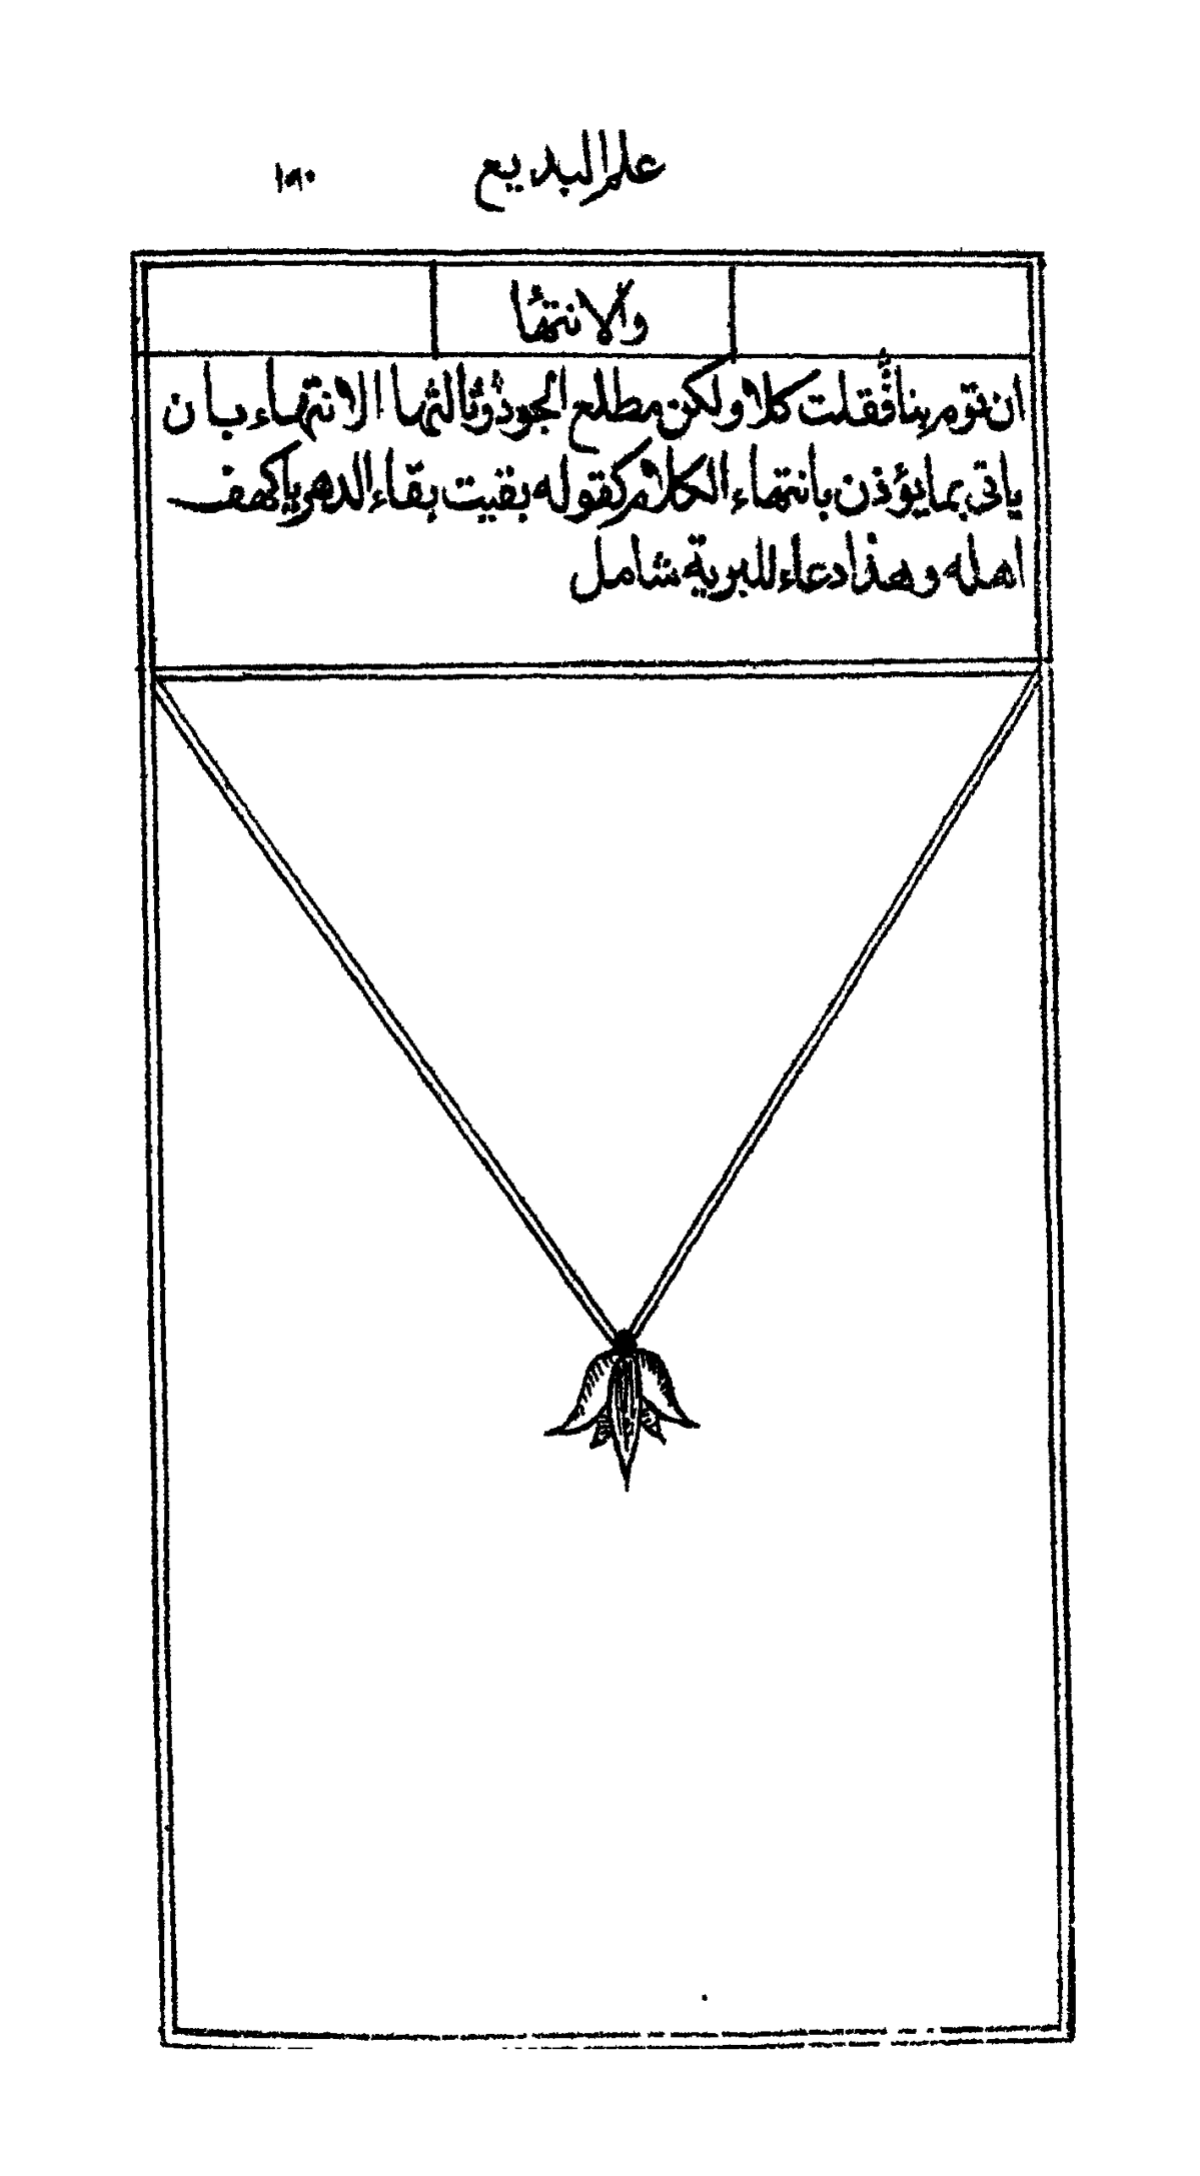 علم البديع ١٥٠
والانتها
ان تؤم بنا فقلت كلا ولكن مطلع الجود وثالثها الانتهاء بان
ياتى بما يؤذن بانتهاء الكلام كقوله بقيت بقاء الدهر يا كهف
اهله وهذا دعاء للبرية شامل